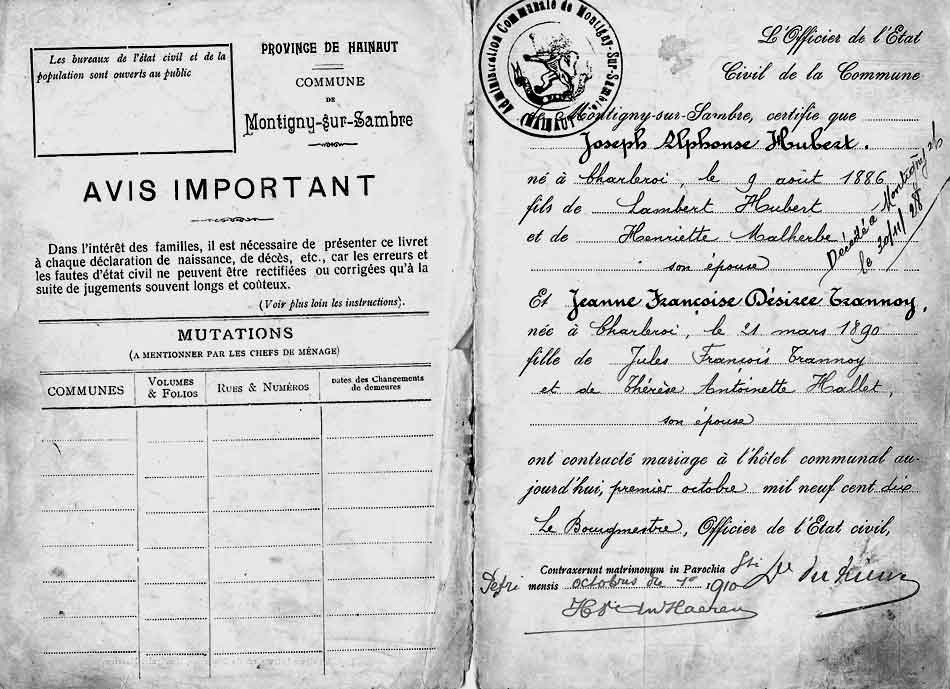 Les bureaux de l'état civil et de la
population sont ouverts au public
PROVINCE DE HAINAUT
COMMUNE
DE
Montigny-sur-Sambre
AVIS IMPORTANT
Dans l'intérêt des familles, il est nécessaire de présenter ce livret
à chaque déclaration de naissance, de décès, etc., car les erreurs et
les fautes d'état civil ne peuvent être rectifiées ou corrigées qu'à la
suite de jugements souvent longs et coûteux.
(Voir plus loin les instructions).
MUTATIONS
(A MENTIONNER PAR LES CHEFS DE MÉNAGE)
COMMUNES
VOLUMES
& FOLIOS
RUES & NUMÉROS
Dates des Changements
de demeures
Administration Communale de Montigny-Sur-Sambre
(HAINAUT)
L'Officier de l'Etat
Civil de la Commune
de Montigny-sur-Sambre, certifie que
Joseph Alphonse Hubert.
né à Charleroi, le 9 août 1886
fils de Lambert Hubert
et de Henriette Malherbe
son épouse
Décédé à Montigny s/
le 20/11/28
Et Jeanne Françoise Désirée Trannoy,
née à Charleroi, le 21 mars 1890
fille de Jules François Trannoy
et de Thérèse Antoinette Hallet,
son épouse
ont contracté mariage à l'hôtel communal au-
jourd'hui, premier octobre mil neuf cent dix
Le Bourgmestre, Officier de l'Etat civil,
Contraxerunt matrimonium in Parochia Sti
mensis octobris die 1ª 1910